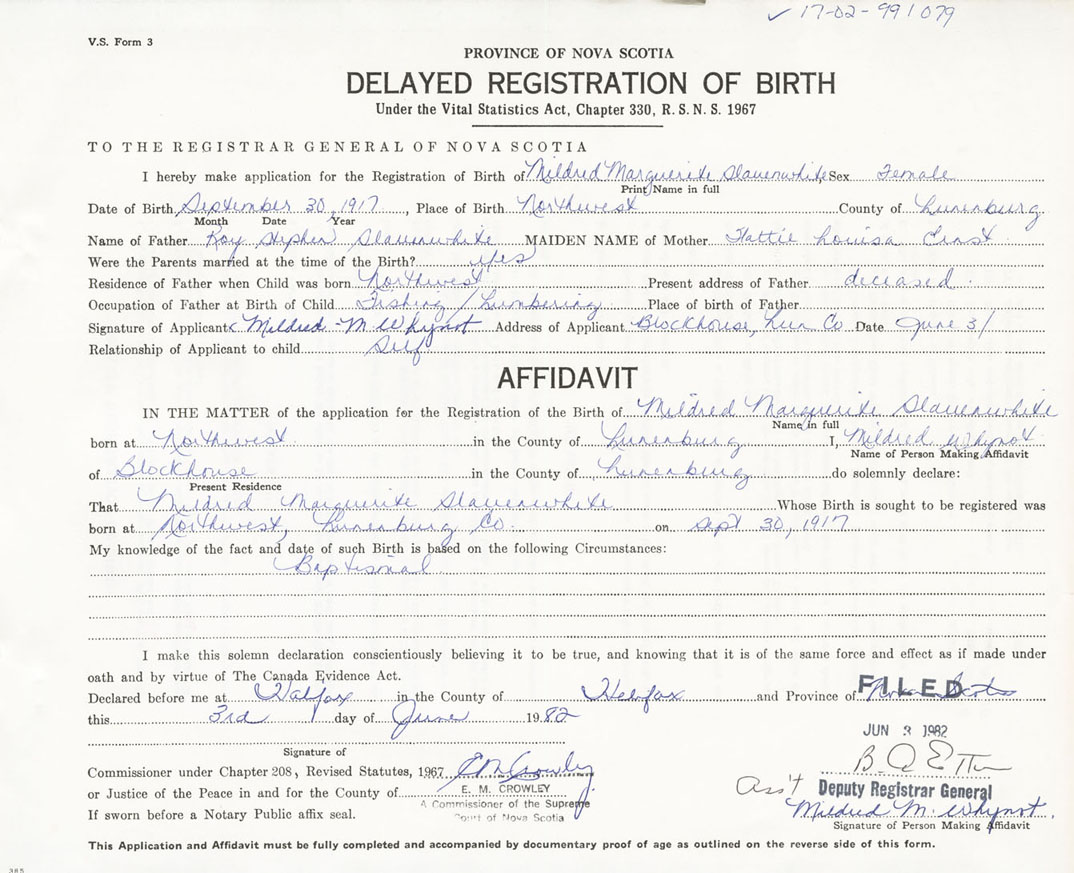 ✓ 17-02-991079
V.S. Form 3
PROVINCE OF NOVA SCOTIA
DELAYED REGISTRATION OF BIRTH
Under the Vital Statistics Act, Chapter 330, R.S.N.S. 1967
TO THE REGISTRAR GENERAL OF NOVA SCOTIA
I hereby make application for the Registration of Birth of Mildred Marguerite Slauenwhite Sex Female
Print Name in full
Date of Birth September 30, 1917, Place of Birth Northwest County of Lunenburg
Month Date Year
Name of Father Roy Stephen Slauenwhite MAIDEN NAME of Mother Hattie Louisa Ernst
Were the Parents married at the time of the Birth? yes
Residence of Father when Child was born Northwest Present address of Father deceased.
Occupation of Father at Birth of Child Fishing / Lumbering Place of birth of Father
Signature of Applicant Mildred M Whynot Address of Applicant Blockhouse, Lun Co Date June 3/
Relationship of Applicant to child Self
AFFIDAVIT
IN THE MATTER of the application for the Registration of the Birth of Mildred Marguerite Slauenwhite
Name in full
born at Northwest in the County of Lunenburg I, Mildred Whynot
Name of Person Making Affidavit
of Blockhouse in the County of Lunenburg do solemnly declare:
Present Residence
That Mildred Marguerite Slauenwhite Whose Birth is sought to be registered was
born at Northwest, Lunenburg Co on Sept 30, 1917
My knowledge of the fact and date of such Birth is based on the following Circumstances:
Baptismal
I make this solemn declaration conscientiously believing it to be true, and knowing that it is of the same force and effect as if made under
oath and by virtue of The Canada Evidence Act.
Declared before me at Halifax in the County of Halifax and Province of Nova Scotia
FILED
this 3rd day of June 1982
JUN 3 1982
Signature of
Commissioner under Chapter 208, Revised Statutes, 1967 EM Crowley
or Justice of the Peace in and for the County of E. M. CROWLEY
A Commissioner of the Supreme
Court of Nova Scotia
If sworn before a Notary Public affix seal.
Ass't Deputy Registrar General
Mildred M. Whynot.
Signature of Person Making Affidavit
This Application and Affidavit must be fully completed and accompanied by documentary proof of age as outlined on the reverse side of this form.
385